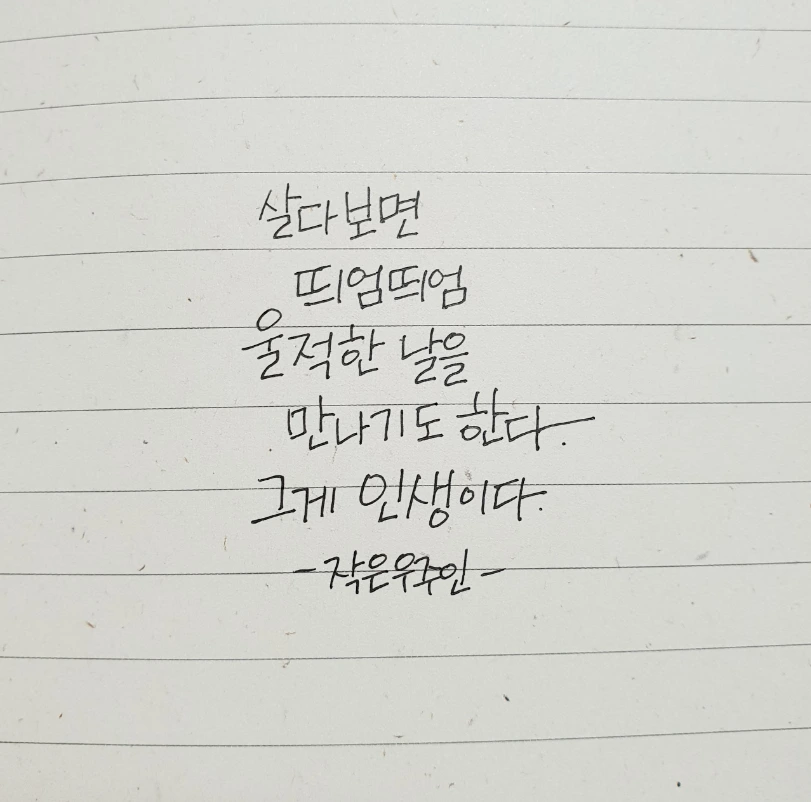 살다보면
띄엄띄엄
울적한 날을
만나기도 한다.
그게 인생이다.
-작은우주인-